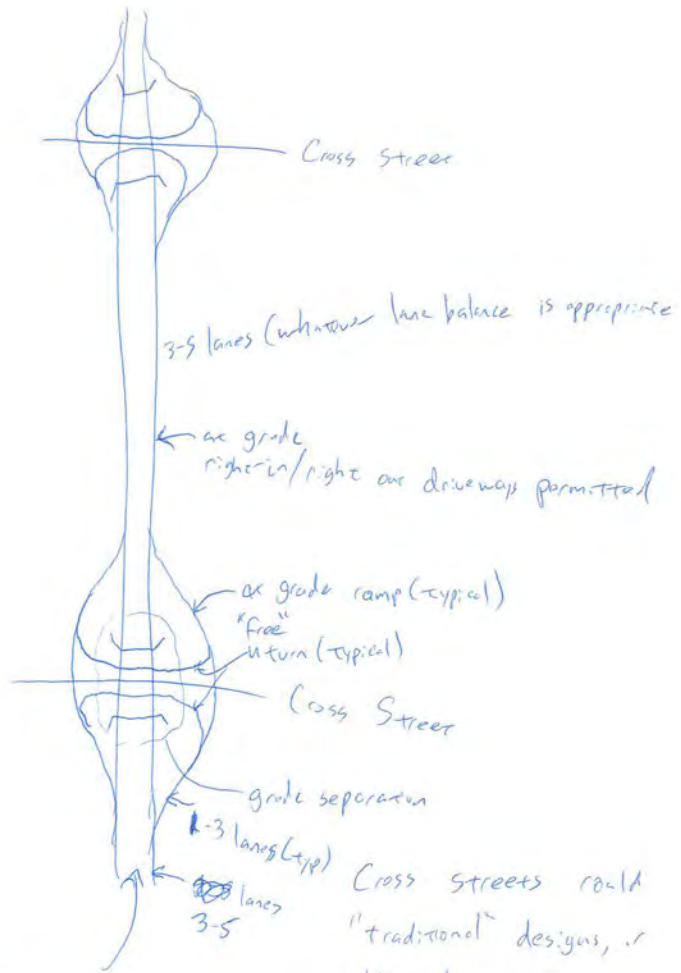 Cross Street
3-5 lanes (whatever lane balance is appropriate
at grade
right-in/right out driveways permitted
at grade ramp (typical)
"free"
u turn (typical)
Cross Street
grade separation
1-3 lanes (typ)
lanes
3-5
Cross streets could
"traditional" designs, or